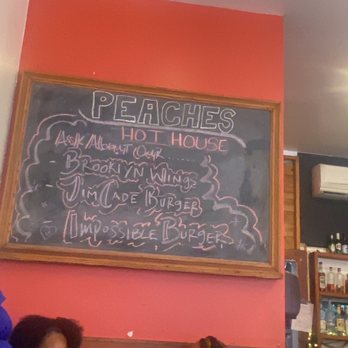 PEACHES
HOT HOUSE
ASK ABOUT OUR......
- BROOKLYN WINGS
- JIM CADE BURGER
- IMPOSSIBLE BURGER